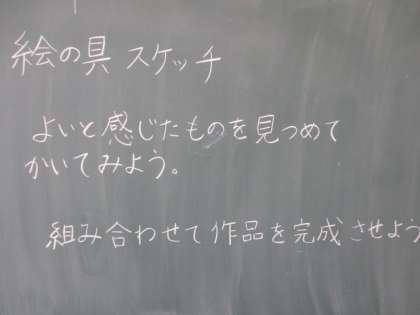 絵の具 スケッチ
よいと感じたものを見つめて
かいてみよう。
組み合わせて作品を完成させよう